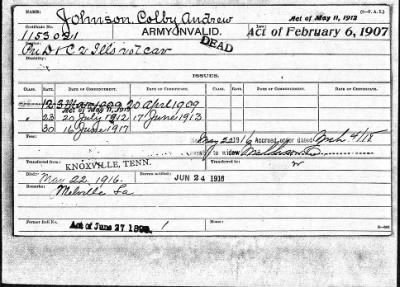 (3-F. A. I.)
Johnson, Colby Andrew
Act of May 11, 1912
Certificate No.
ARMY INVALID.
1153021
DEAD
Act of February 6, 1907
Service:
Pri D+C 2 Ills vol cav
Disability:
ISSUES.
CLASS. RATE. DATE OF COMMENCEMENT. DATE OF CERTIFICATE. CLASS. RATE. DATE OF COMMENCEMENT. DATE OF CERTIFICATE.
12 3 Mar 1909 20 April 1909
Act of May 11, 1912
23 20 July 1912 17 June 1913
30 16 June 1917
Fees:
May 22 1916 Accrued order dated Mch 4/18
to widow
Transferred from
KNOXVILLE, TENN.
Transferred to
Died: May 22, 1916.
Bureau notified:
JUN 24 1916
Remarks:
Melville La
Former Roll No.
Act of June 27 1890